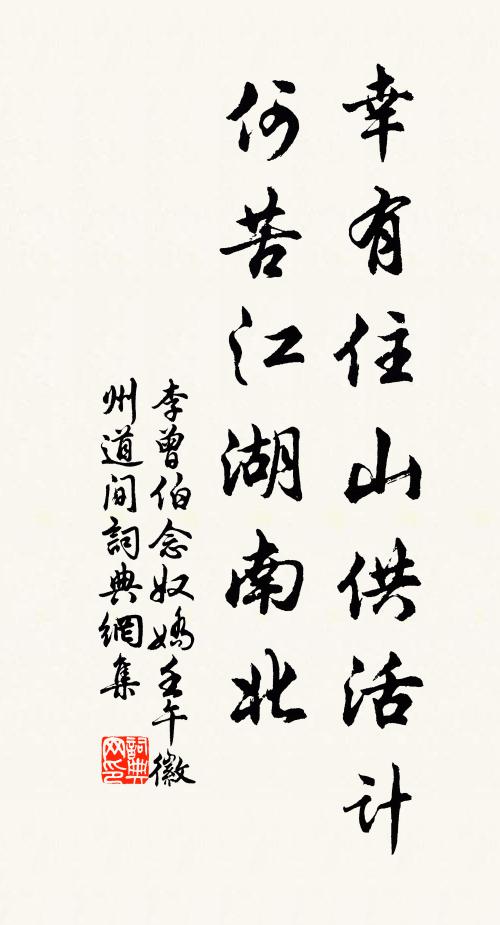 幸有住山供活计
何苦江湖南北
李曾伯念奴嬌壬午徽
州道间詞典網集
詞典
网印